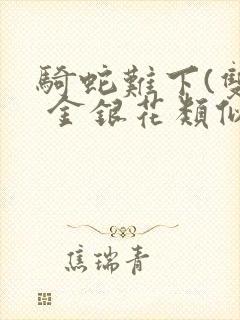 騎蛇難下(雙
金銀花類似
焦瑞青